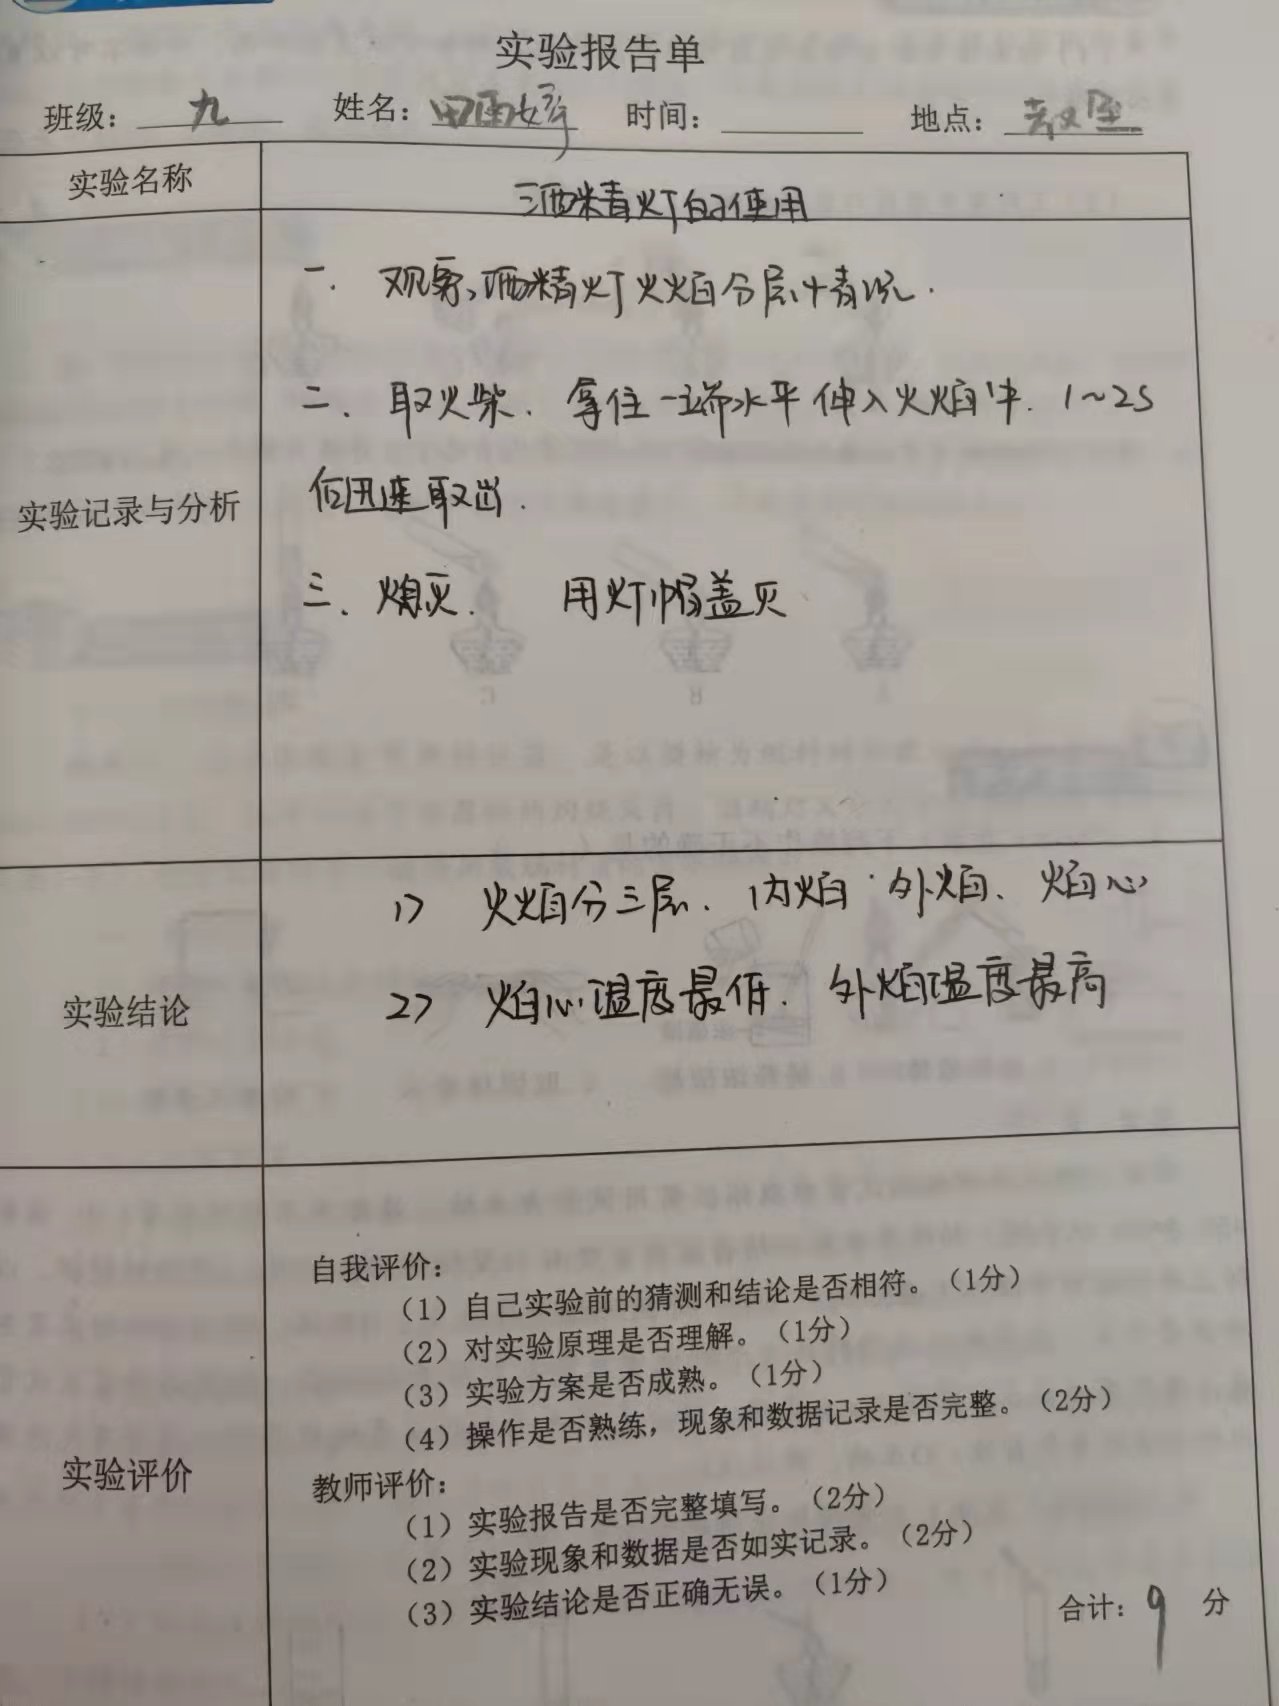 实验报告单
班级：九 姓名：田雨婷 时间： 地点：教室
实验名称 酒精灯的使用
一. 观察酒精灯火焰分层情况.
二、取火柴. 拿住一端水平伸入火焰中. 1~2s
后迅速取出.
实验记录与分析
三、熄灭. 用灯帽盖灭
1) 火焰分三层. 内焰 外焰、焰心
2) 焰心温度最低. 外焰温度最高
实验结论
自我评价：
（1）自己实验前的猜测和结论是否相符。（1分）
（2）对实验原理是否理解。（1分）
（3）实验方案是否成熟。（1分）
（4）操作是否熟练，现象和数据记录是否完整。（2分）
实验评价
教师评价：
（1）实验报告是否完整填写。（2分）
（2）实验现象和数据是否如实记录。（2分）
（3）实验结论是否正确无误。（1分）
合计：9 分